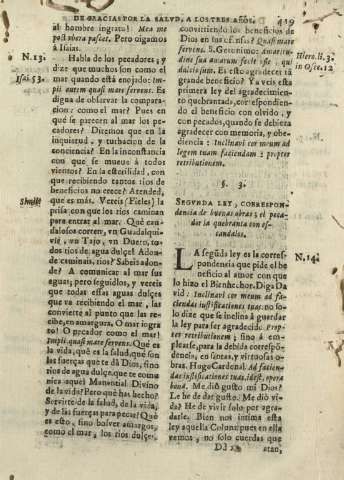 DE GRACIAS POR LA SALVD, A LOS TRES AÑOS. 419
al hombre ingrato! Mea me
post vbera pascet. Pero oigamos
à Isaias.
N. 13.
Habla de los pecadores; y
dize que muchos son como el
Isai. 53.
mar quando està enojado: Im-
pij autem quasi mare fervens. Es
digna de observar la compara-
cion: como el mar? Pues en
què se parecen al mar los pe-
cadores? Diremos que en la
inquietud, y turbacion de la
conciencia? En la inconstancia
con que se mueve à todos
vientos? En la esterilidad, con
que recibiendo tantos rios de
beneficios no crece? Atended,
Simil.
que es mas. Vereis (Fieles) la
prisa con que los rios caminan
para entrar al mar. Què cau-
dalosos corren, vn Guadalqui-
vir, vn Tajo, vn Duero, to-
dos rios de agua dulce? Adon-
de caminais, rios? Sabeis adon-
de? A comunicar al mar sus
aguas; pero seguidlos, y vereis
que todas essas aguas dulces
que va recibiendo el mar, las
convierte al punto que las re-
cibe, en amargura. O mar ingra-
to! O pecador como el mar!
Impij quasi mare fervens. Què es
la vida, què es la salud, què son
las fuerças que te dà Dios, sino
rios de agua dulce, que te comu-
nica aquel Manantial Divino
de la vida? Pero què has hecho?
Servirte de la salud, de la vida,
y de las fuerças para pecar? Què
es esto, sino bolver amargos,
como el mar, los rios dulces,
convirtiendo los beneficios de
Dios en ofensas? Quasi mare
fervens. S. Geronimo: Amaritu-
Hiero. li. 3.
in Osee. 12
dine sua amarum fecit esse, qui
dulcis fuit. Es esto agradecer tã
grande beneficio? Ya veis esta
primera ley del agradecimiento
quebrantada, correspondien-
do el beneficio con olvido, y
con pecados, quando se debiera
agradecer con memoria, y obe-
diencia: Inclinavi cor meum ad
legem tuam faciendam: propter
retributionem.
§. 3.
SEGVNDA LEY, CORRESPONDEN-
cia de buenas obras; el peca-
dor la quebranta con es-
candalos.
N. 14.
LA segũda ley es la corres-
pondencia que pide el be-
neficio al amor con que
lo hizo el Bienhechor. Diga Da-
vid: Inclinavi cor meum ad fa-
ciendas iustificationes tuas. no so-
lo dize que se inclina à guardar
la ley para ser agradecido: Prop-
ter retributionem; sino à em-
plearse, para la debida correspõ-
dencia, en santas, y virtuosas o-
bras. Hugo Cardenal. Ad facien-
das iustificationes tuas, idest, opera
bona. Me diò gusto mi Dios?
Le he de dar gusto. Me diò vi-
da? He de vivir solo por agra-
darle. Bien nos intima esta
ley aquella Coluna pues en ella
vemos, no solo cuerdas que
Dd 2 atan,